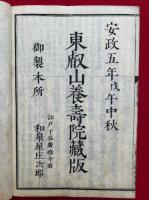 安政五年戊午中秋
東叡山養壽院藏版
江戸下谷廣徳寺前
御製本所
和泉屋庄次郎